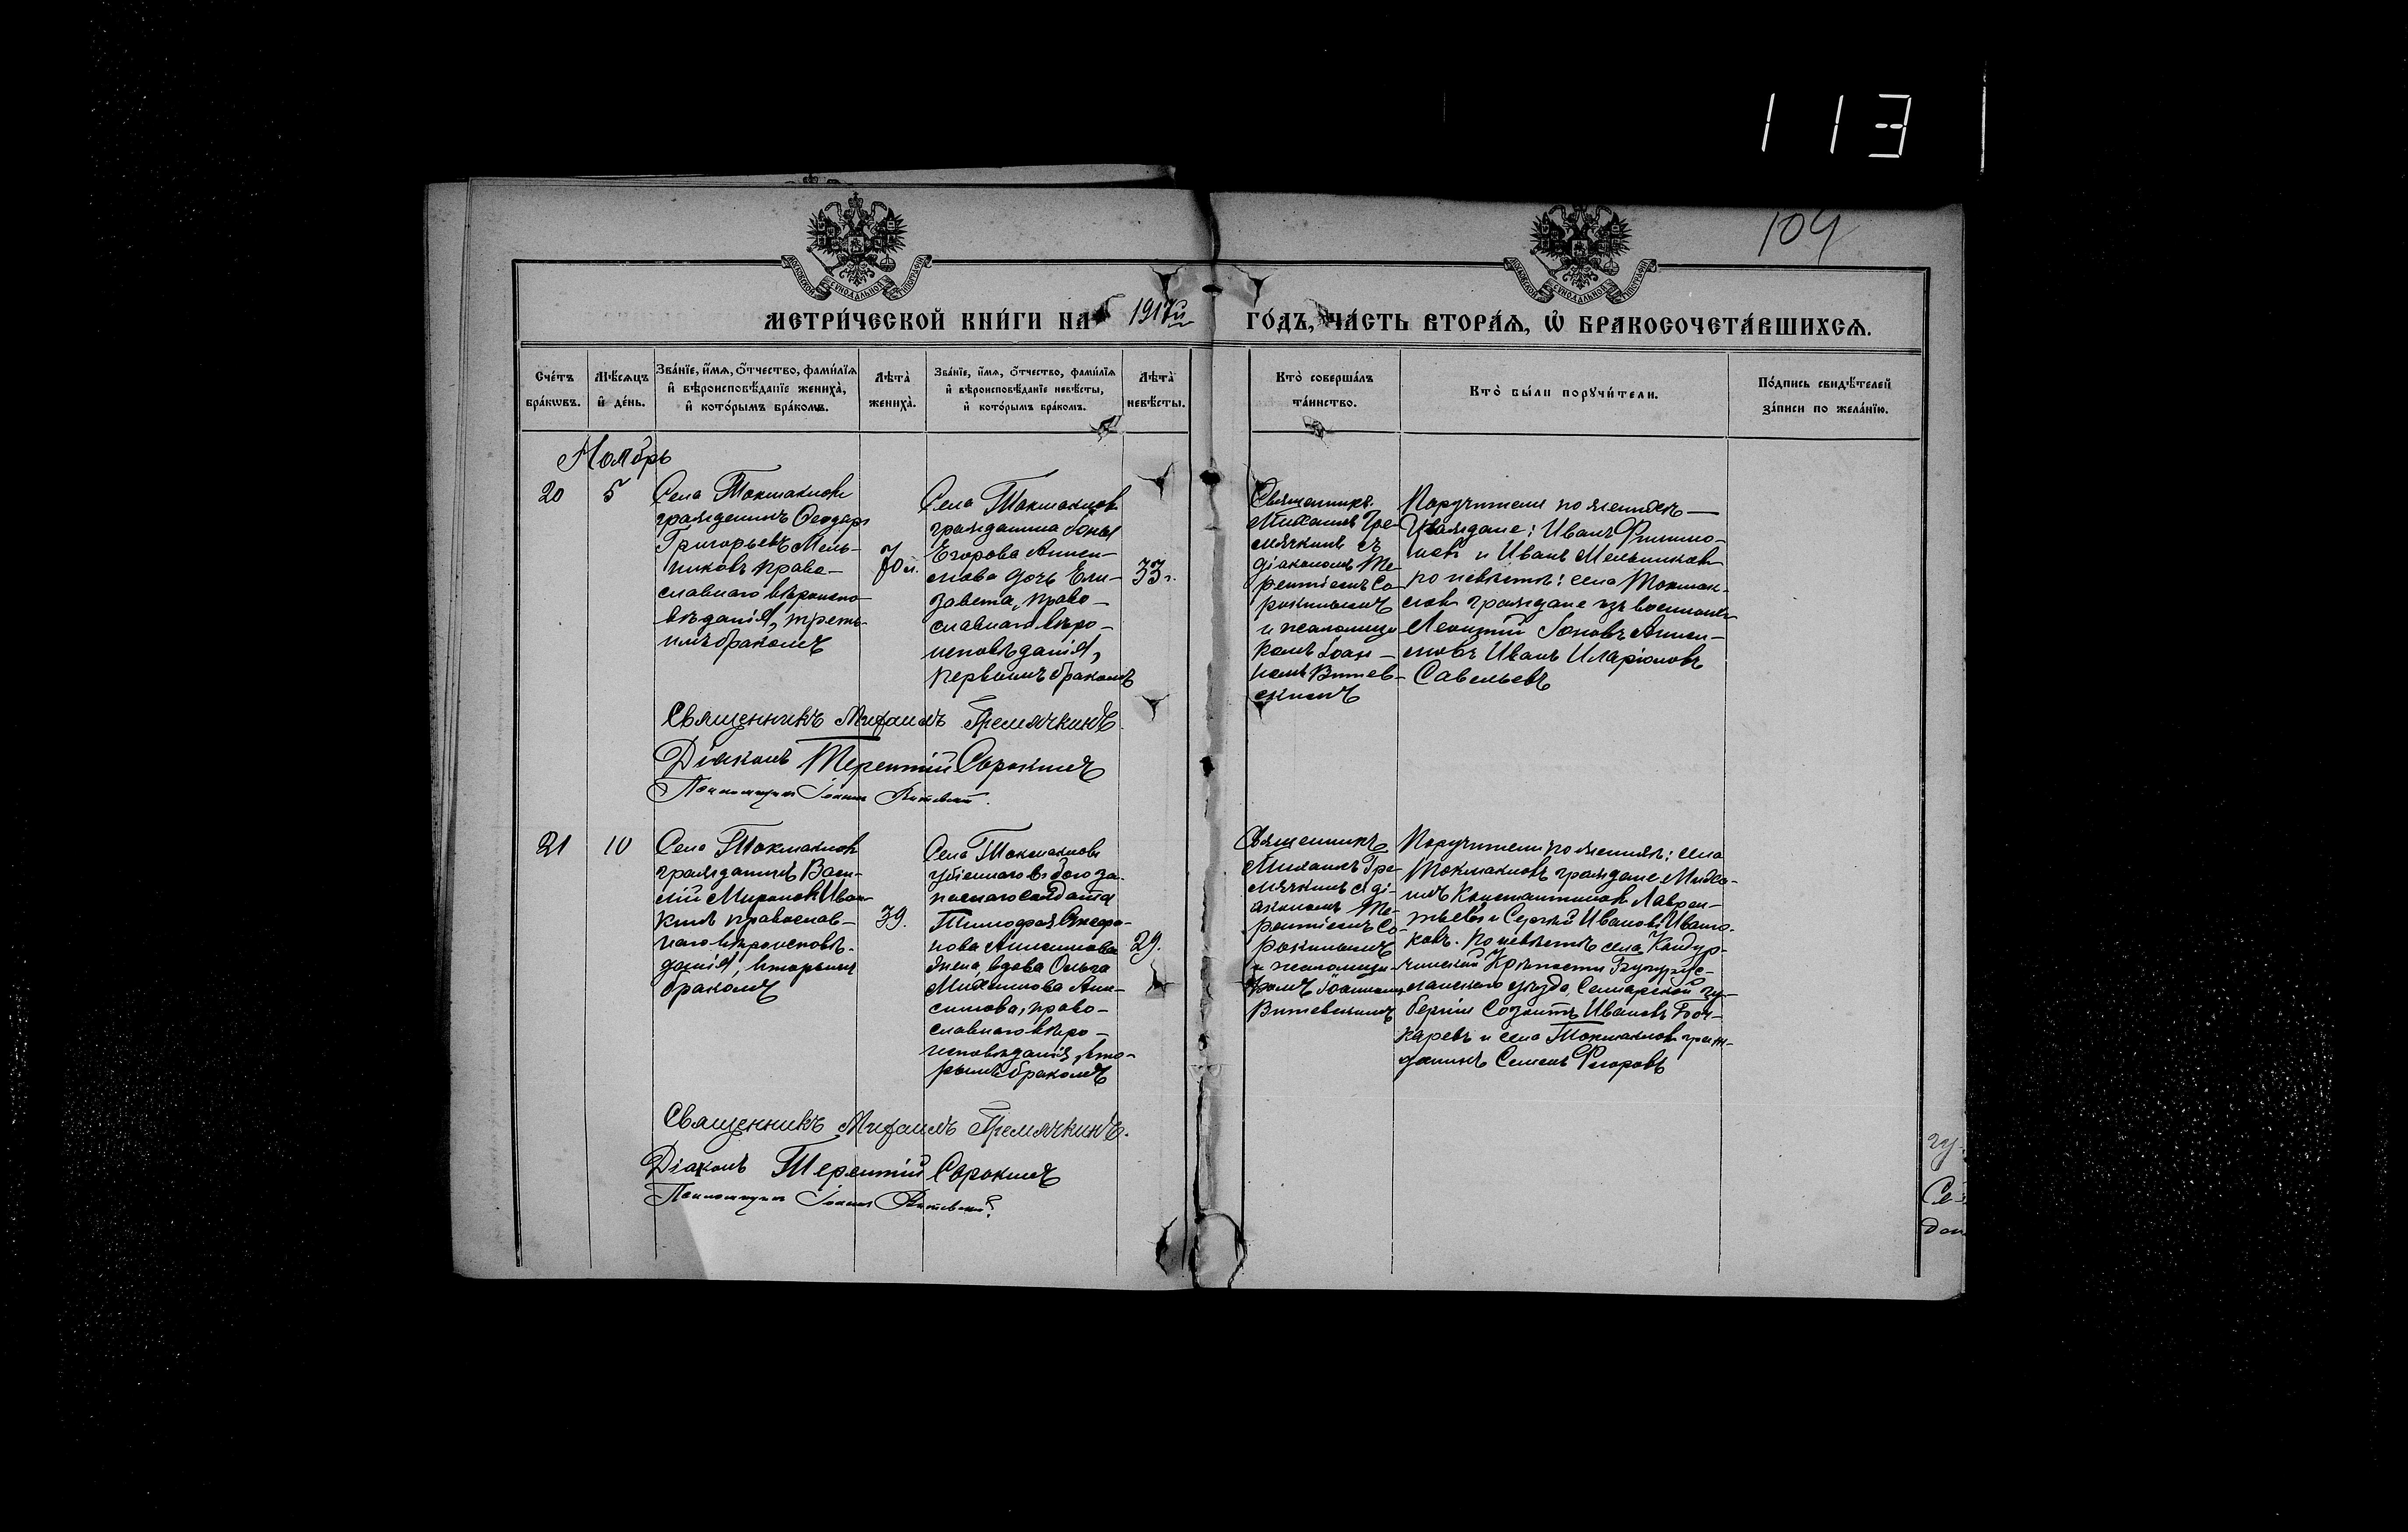 113
104
МОСКОВСКОЙ СУНОДАЛЬНОЙ ТИПОГРАФІИ
МОСКОВСКОЙ СУНОДАЛЬНОЙ ТИПОГРАФІИ
МЕТРИ́ЧЕСКОЙ КНИ́ГИ НА 1917й ГО́ДЪ, ЧА́СТЬ ВТОРА́Я, Ѽ БРАКОСОЧЕТА́ВШИХСЯ.
Сче́тъ
бра́кѡвъ.
Мѣ́сяцъ
и҆ де́нь.
Зва́нїе, и҆́мя, ѻ҆́тчество, фами́лїя
и҆ вѣроисповѣ́данїе жениха̀,
и҆ кото́рымъ бра́комъ.
Лѣта̀
жениха̀.
Зва́нїе, и҆́мя, ѻ҆́тчество, фами́лїя
и҆ вѣроисповѣ́данїе невѣ́сты,
и҆ кото́рымъ бра́комъ.
Лѣта̀
невѣ́сты.
Кто̀ соверша́лъ
та́инство.
Кто̀ бы́ли порꙋчи́тели.
По́дпись свидѣ́телей
за́писи по жела́нїю.
Ноябрь
20
5
Села Токмаклов
гражданинъ Ѳеодоръ
Григорьевъ Мель-
никовъ право-
славнаго вѣроиспо-
вѣданія, треть-
имъ бракомъ
70 л.
Села Токмаклов
гражданина Іоны
Егорова Аниси-
мова дочь Ели-
завета, право-
славнаго вѣро-
исповѣданія,
первымъ бракомъ
33 г.
Священникъ
Михаилъ Гре-
мячкинъ съ
діакономъ Те-
рентіемъ Со-
рокинымъ
и псаломщи-
комъ Іоан-
номъ Витев-
скимъ
Поручители по женихѣ
Граждане: Иванъ Филипо-
новъ и Иванъ Мельниковъ
по невѣстѣ: села Токмак-
лов граждане изъ военныхъ
Леонтій Іоновъ Аниси-
мовъ Иванъ Иларіоновъ
Савельевъ
Священникъ Михаилъ Гремячкинъ.
Діаконъ Терентій Сорокинъ
Псаломщикъ Іоаннъ Витевскій.
21
10
Села Токмаклов
гражданинъ Васи-
лій Мироновъ Иван-
кинъ православ-
наго вѣроисповѣ-
данія, вторымъ
бракомъ
39.
Села Токмаклов
убіеннаго въ бою за-
паснаго солдата
Тимофея Ѳедо-
това Анисимова
жена, вдова Ольга
Михаилова Ани-
симова, право-
славнаго вѣро-
исповѣданія, вто-
рымъ бракомъ
29.
Священникъ
Михаилъ Гре-
мячкинъ съ ді-
акономъ Те-
рентіемъ Со-
рокинымъ
и псаломщи-
комъ Іоанномъ
Витевскимъ
Поручители по женихѣ: села
Токмаклов граждане Михаи-
илъ Константиновъ Лаврен-
тьевъ и Сергѣй Ивановъ Ивано-
ковъ. По невѣстѣ села Кандур-
чинской Крѣпости Бугурус-
ланскаго уѣзда, Самарской гу-
берніи Созонтъ Ивановъ Боч-
каревъ и села Токмаклов граж-
данинъ Семенъ Егоровъ
Священникъ Михаилъ Гремячкинъ.
Діаконъ Терентій Сорокинъ
Псаломщикъ Іоаннъ Витевскій.